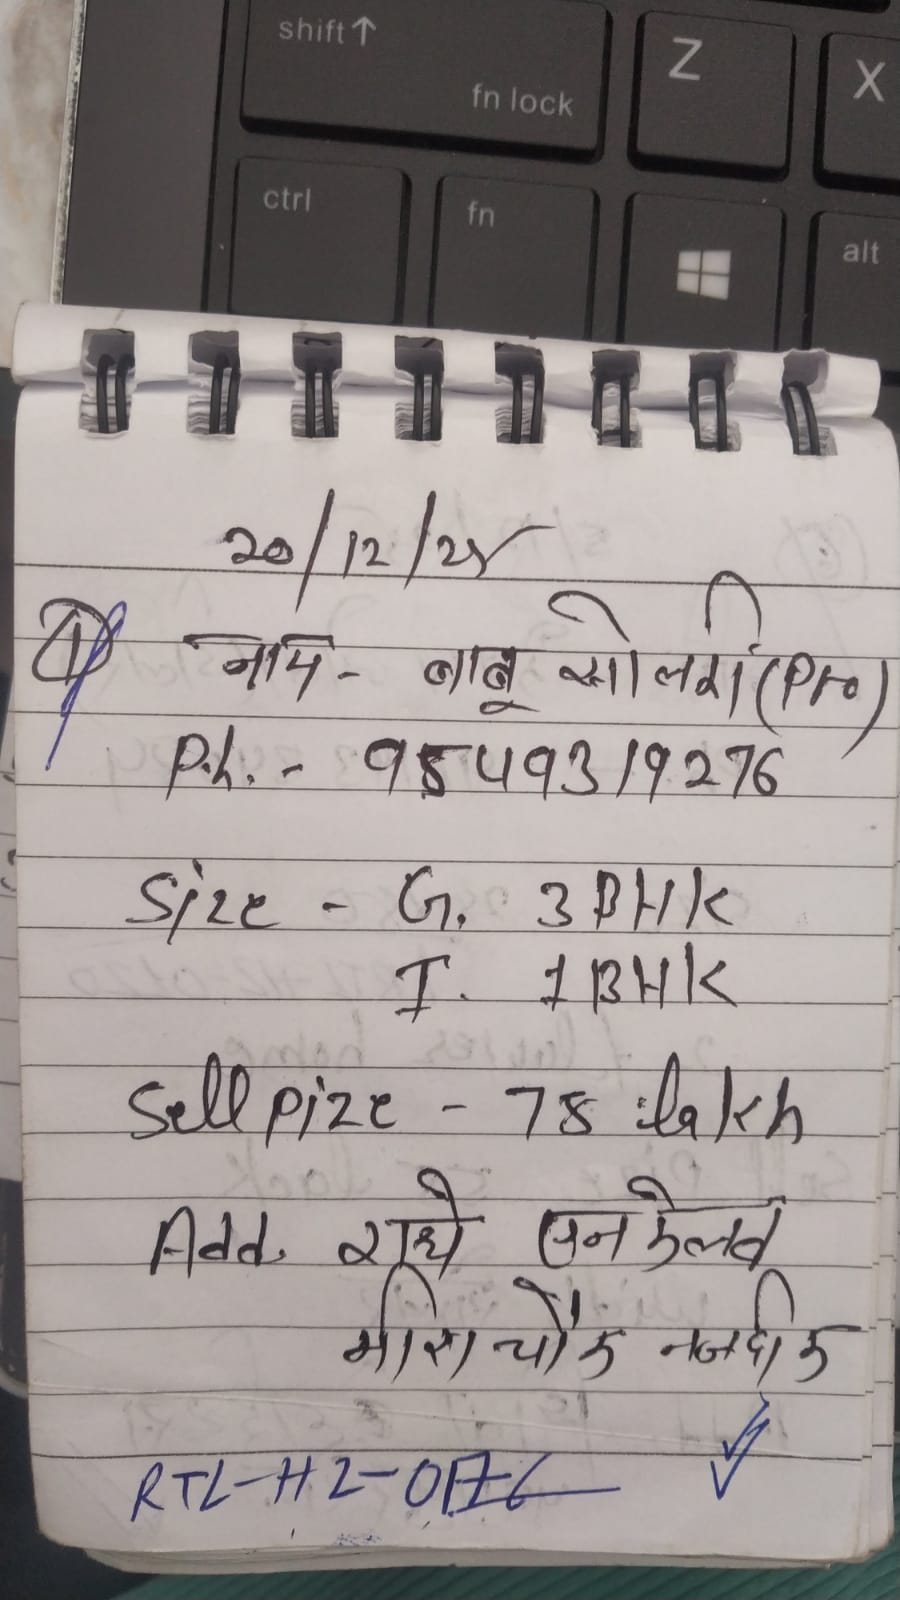 shift↑
fn lock
Z
X
ctrl
fn
alt
20/12/25
① नाम - बाबू सोलंकी (Pro)
Ph. - 9549319276
Size - G. 3BHK
I. 1BHK
Sell pize - 78 lakh
Add. राधे एनकेलव
मीरा चौक नजदीक
RTL-HZ-0176